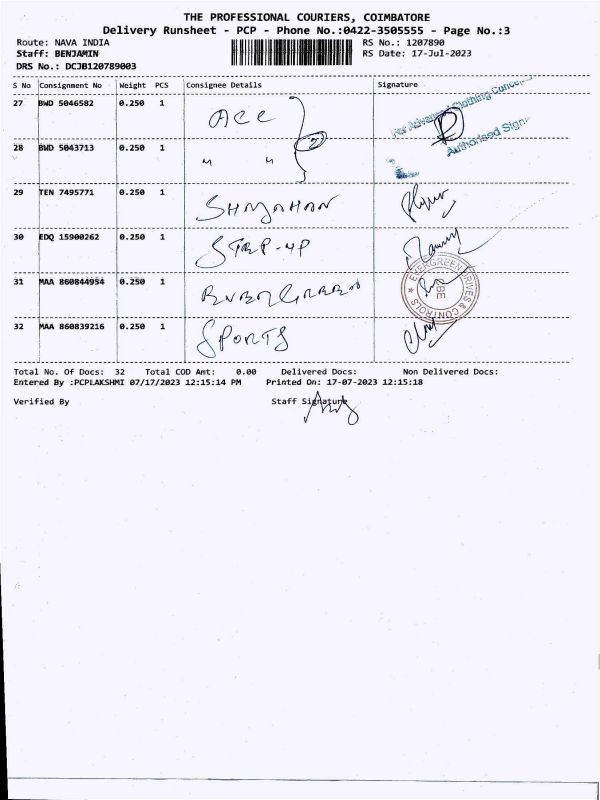 THE PROFESSIONAL COURIERS, COIMBATORE
Delivery Runsheet - PCP - Phone No.:0422-3505555 - Page No.:3
Route: NAVA INDIA RS No.: 1207890
Staff: BENJAMIN RS Date: 17-Jul-2023
DRS No.: DCJB120789003
S No Consignment No Weight PCS Consignee Details Signature
27 BWD 5046582 0.250 1 ACC
For Advanced Clothing Concepts
Authorised Sign
28 BWD 5043713 0.250 1 " " 2
29 TEN 7495771 0.250 1 SHMAHAN
30 EDQ 15900262 0.250 1 STEP-UP
31 MAA 860844954 0.250 1 EVERGREEN
EVERGREEN DRIVES & CONTROLS
CBE
32 MAA 860839216 0.250 1 SPORTS
Total No. Of Docs: 32 Total COD Amt: 0.00 Delivered Docs: Non Delivered Docs:
Entered By :PCPLAKSHMI 07/17/2023 12:15:14 PM Printed On: 17-07-2023 12:15:18
Verified By Staff Signature